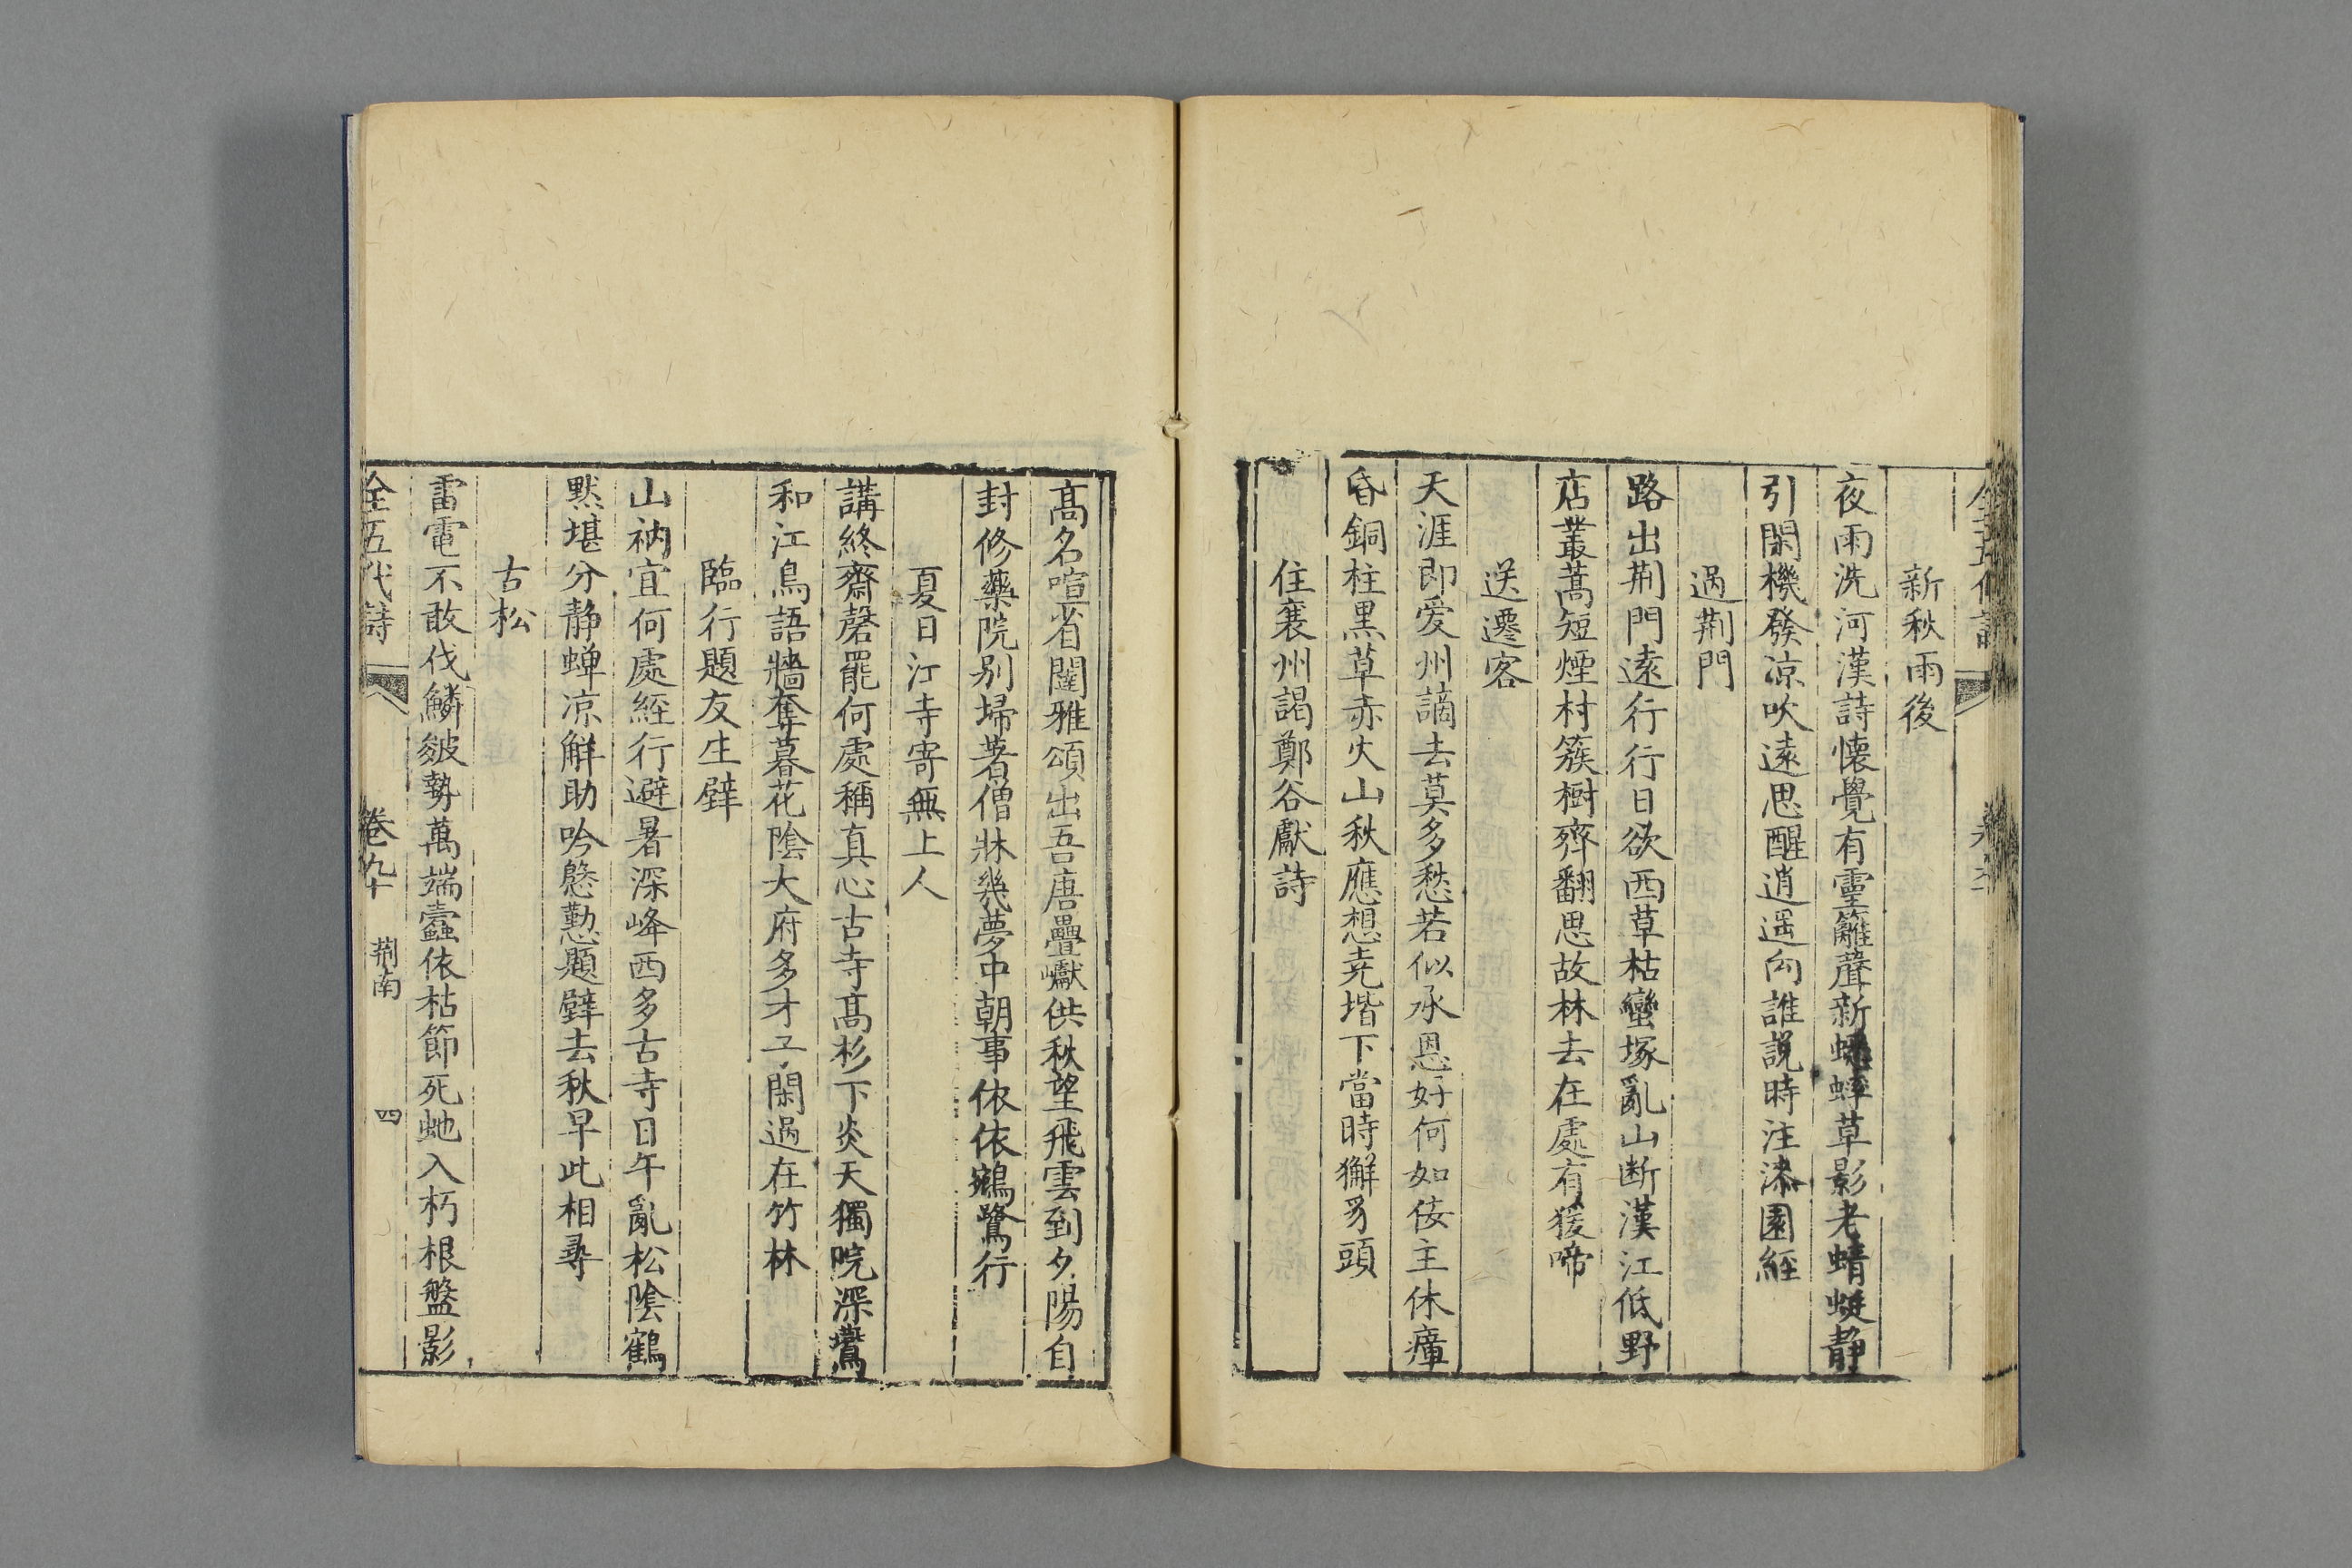 新秋雨後
夜雨洗河漢詩懷覺有靈籬聲新蟋蟀草影老蜻蜓静
引閑機發凉吹遠思醒逍遥向誰説時注漆園經
過荆門
路出荆門遠行行日欲西草枯蠻塚亂山断漢江低野
店叢蒿短煙村簇樹齊翻思故林去在處有猨啼
送遷客
天涯即爱州謫去莫多愁若似承恩好何如佞主休瘴
昏銅柱黒草赤火山秋應想尭堦下當時獬豸頭
住襄州謁鄭谷獻詩
髙名喧省闥雅頌出吾唐疊巘供秋望飛雲到夕陽自
封修藥院别埽著僧牀幾夢中朝事依依鵷鷺行
夏日江寺寄無上人
講終齋磬罷何處稱真心古寺髙杉下炎天獨院深鷰
和江鳥語牆奪暮花陰大府多才子閑過在竹林
臨行題友生壁
山衲宜何處經行避暑深峰西多古寺日午亂松陰鶴
黙堪分静蝉凉解助吟慇懃題壁去秋早此相尋
古松
雷電不敢伐鱗皴勢萬端蠧依枯節死虵入朽根盤影
全五代詩 卷九十 荆南 四